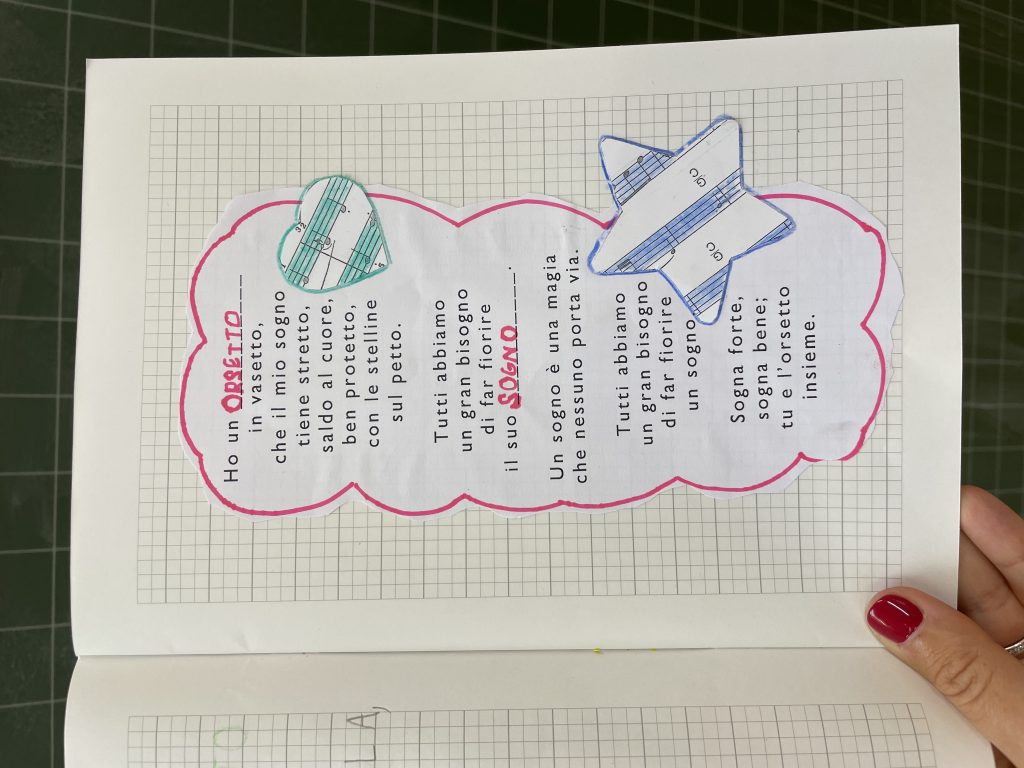 Ho un ORSETTO
in vasetto,
che il mio sogno
tiene stretto,
saldo al cuore,
ben protetto,
con le stelline
sul petto.
Tutti abbiamo
un gran bisogno
di far fiorire
il suo SOGNO.
Un sogno è una magia
che nessuno porta via.
Tutti abbiamo
un gran bisogno
di far fiorire
un sogno
Sogna forte,
sogna bene;
tu e l'orsetto
insieme.
LA,